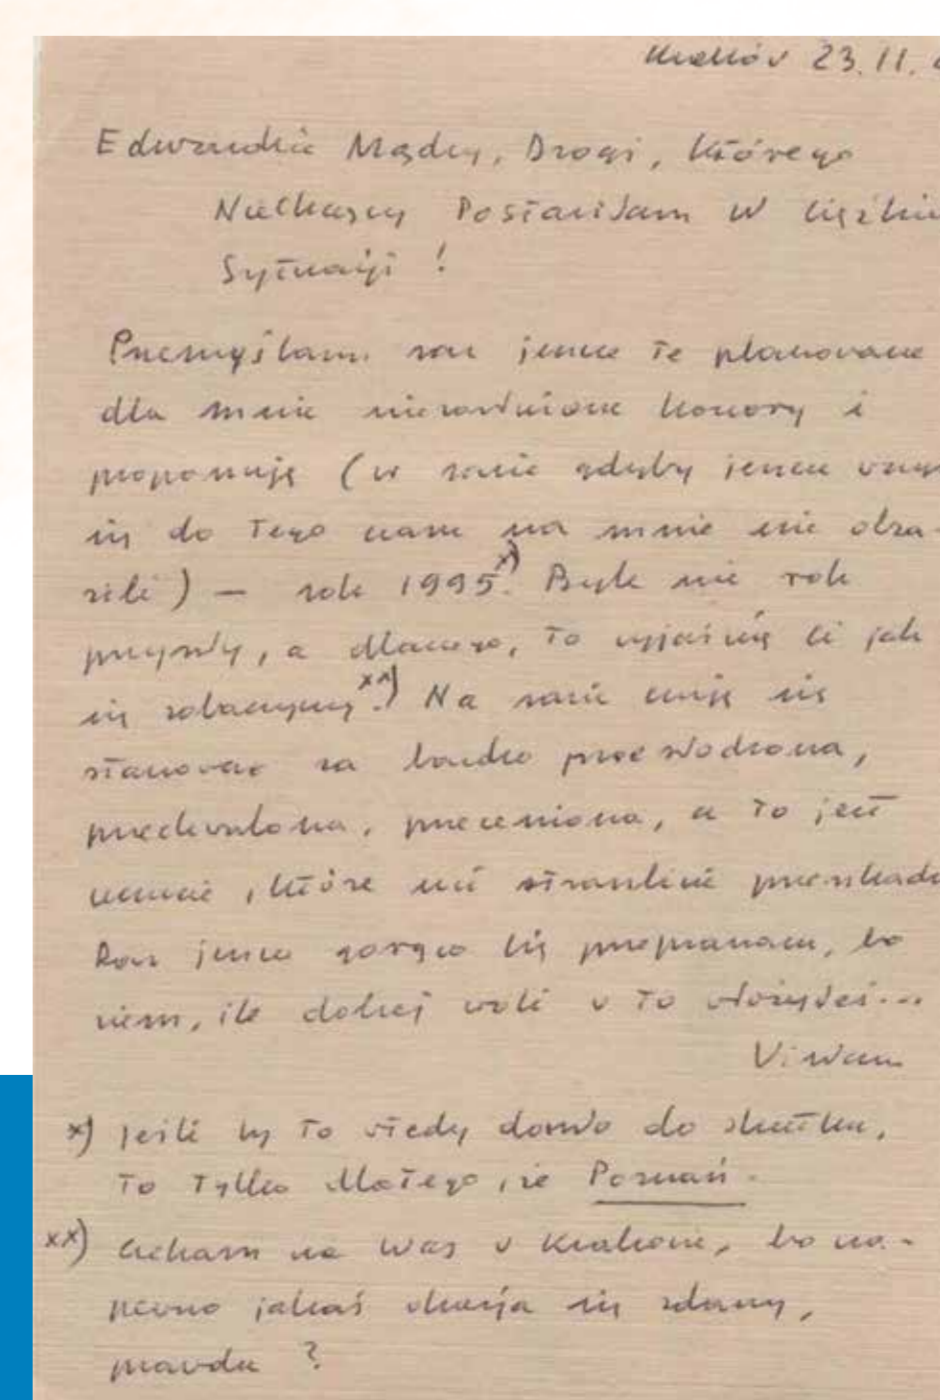 Kraków 23.11.
Edwardzie Mądry, Drogi, Którego
Niechcący Postawiłam w Ciężkiej
Sytuacji!
Przemyślałam raz jeszcze te planowane
dla mnie niezasłużone honory i
proponuję (w razie gdyby jeszcze
się do tego czasu na mnie nie obra-
zili) – rok 1995 x). Byle nie rok
przyszły, a dlaczego, to wyjaśnię Ci jak
się zobaczymy xx). Na razie czuję się
stanowczo za bardzo przesłodzona,
przechwalona, przeceniona, a to jest
uczucie, które mi straszliwie przeszkadza
Raz jeszcze gorąco Cię przepraszam, bo
wiem, ile dobrej woli w to włożyłeś...
x) jeśli by to wtedy doszło do skutku,
to tylko dlatego, że Poznań.
xx) Czekam na Was w Krakowie, bo na-
pewno jakaś okazja się zdarzy,
prawda?